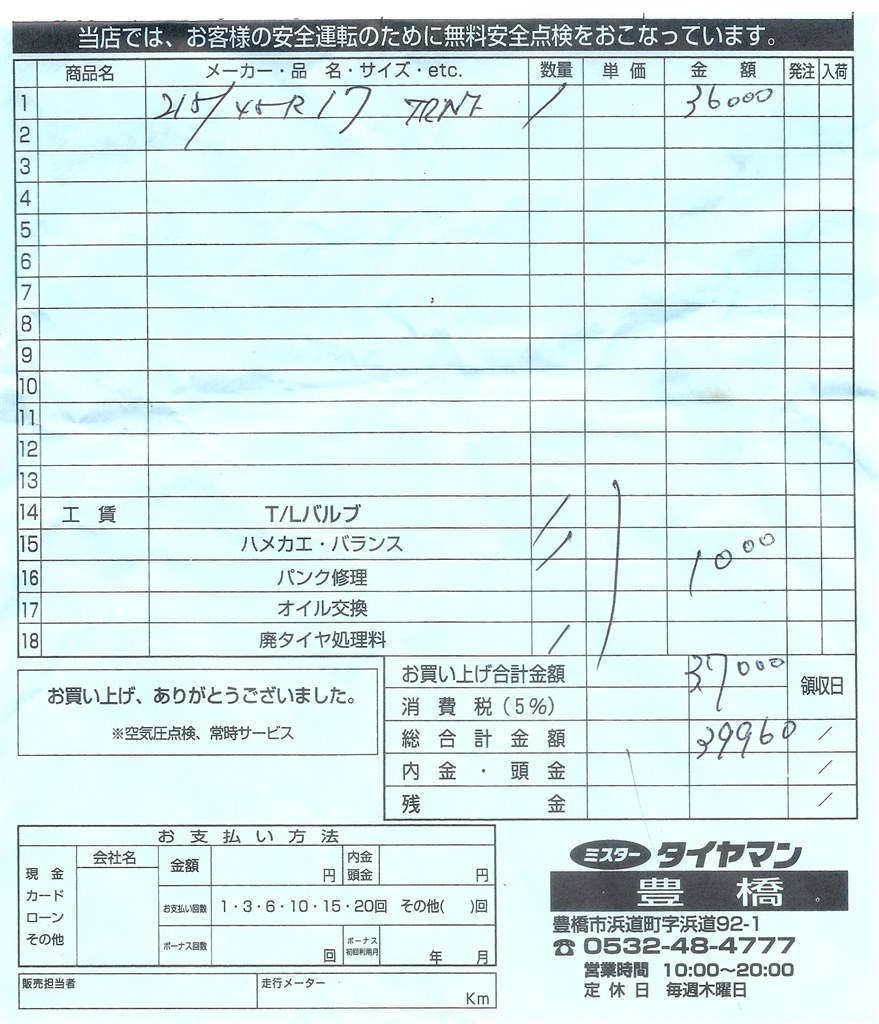 当店では、お客様の安全運転のために無料安全点検をおこなっています。
商品名 メーカー・品 名・サイズ・etc. 数量 単価 金額 発注 入荷
1 215/45R17 TRNZ 1 36000
2
3
4
5
6
7
8
9
10
11
12
13
14 工賃 T/Lバルブ
15 ハメカエ・バランス 1000
16 パンク修理
17 オイル交換
18 廃タイヤ処理料
お買い上げ合計金額 37000 領収日
お買い上げ、ありがとうございました。
消費税(5%)
※空気圧点検、常時サービス
総合計金額 39960 /
内金・頭金 /
残金 /
お支払い方法
現金
カード
ローン
その他
会社名
金額 円 内金 頭金 円
お支払い回数 1・3・6・10・15・20回 その他( )回
ボーナス回数 回 ボーナス初回利用月 年 月
販売担当者 走行メーター Km
ミスタータイヤマン
豊橋
豊橋市浜道町字浜道92-1
☎0532-48-4777
営業時間 10:00～20:00
定休日 毎週木曜日